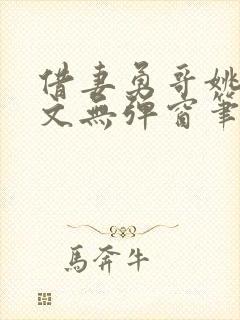 借妻勇哥姚
文無彈窗筆
馬奔牛